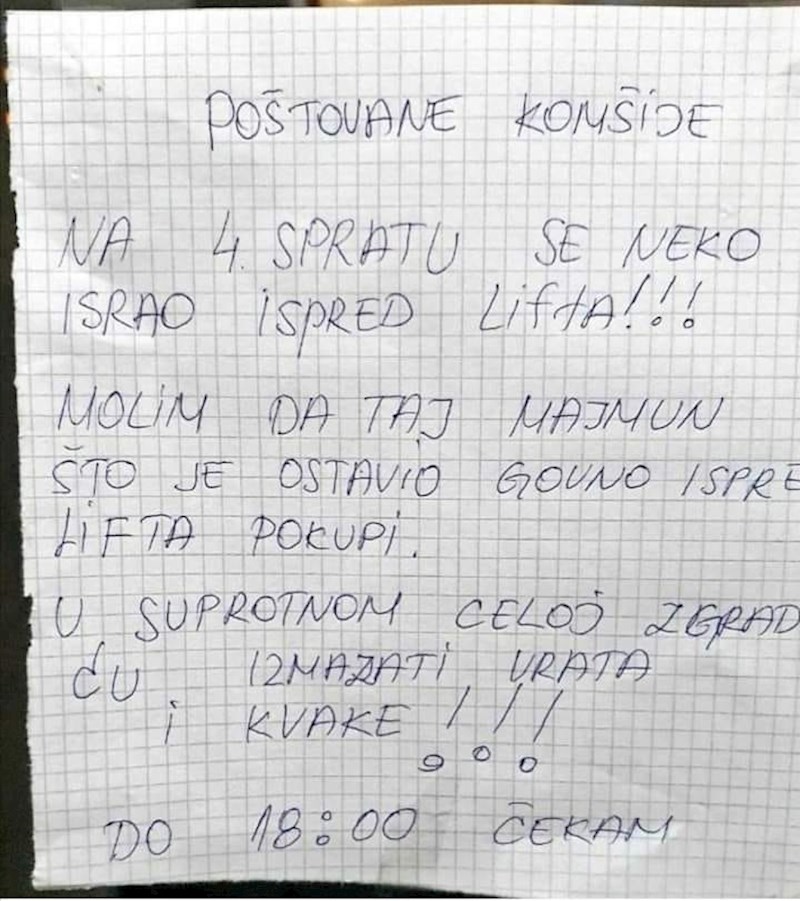 POŠTOVANE KOMŠIJE
NA 4. SPRATU SE NEKO
ISRAO ISPRED LIFTA!!!
MOLIM DA TAJ MAJMUN
ŠTO JE OSTAVIO GOVNO ISPRE
LIFTA POKUPI.
U SUPROTNOM CELOJ ZGRAD
ĆU IZMAZATI VRATA
I KVAKE !!!
DO 18:00 ČEKAM